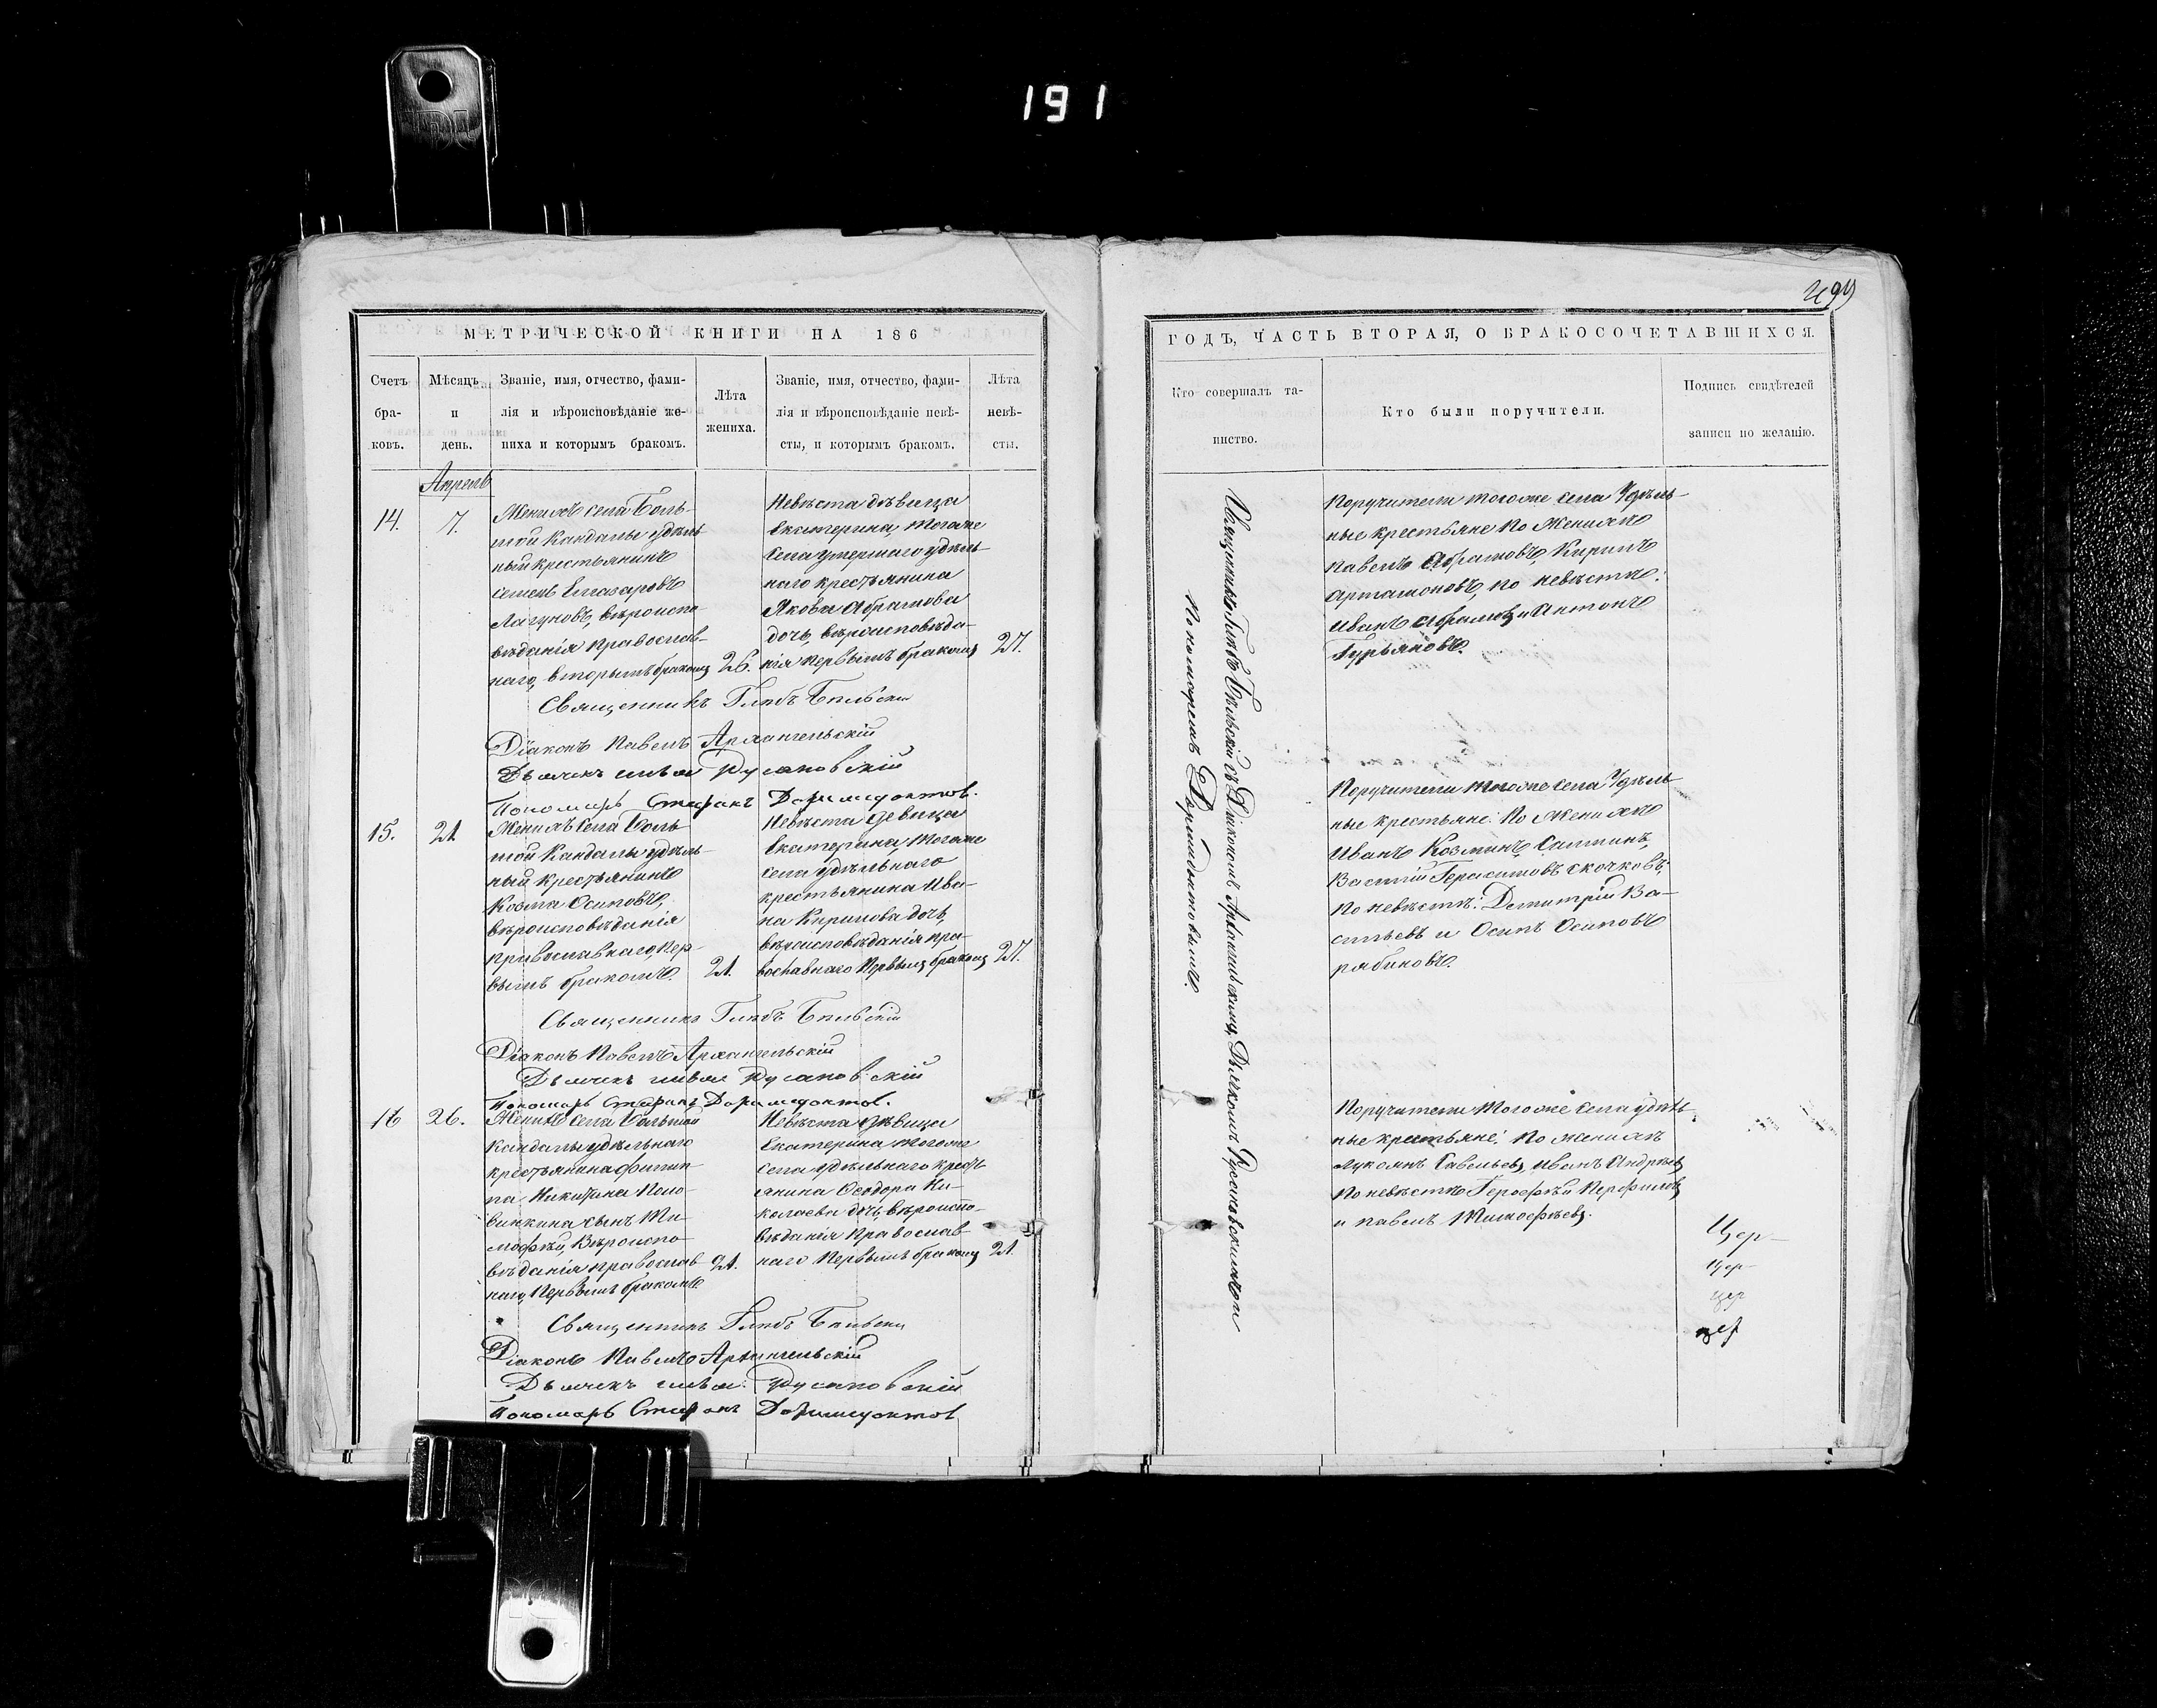 191
499
МЕТРИЧЕСКОЙ КНИГИ НА 186
Счетъ бра-ковъ.
Мѣсяцъ и день.
Званіе, имя, отчество, фами-
лія и вѣроисповѣданіе же-
ниха и которымъ бракомъ.
Лѣта жениха.
Званіе, имя, отчество, фами-
лія и вѣроисповѣданіе невѣ-
сты, и которымъ бракомъ.
Лѣта невѣ-сты.
Апрель
14.
7.
Женихъ села Боль-
шой Кандалы удѣль-
ный крестьянинъ
Семенъ Елазаровъ
Лагуновъ, вѣроиспо-
вѣданія православ-
наго, вторымъ бракомъ
26.
Невѣста дѣвица
Екатерина, тогоже
села умершаго удѣль-
наго крестьянина
Якова Абрамова
дочь, вѣроисповѣда-
нія первымъ бракомъ
27.
Священникъ Глѣбъ Бѣльскій
Діаконъ Павелъ Архангельскій
Дьячекъ
Пономарь Стефанъ Доримедонтов.
15.
21
Женихъ села Боль-
шой Кандалы удѣль-
ный крестьянинъ
Козма Осиповъ,
вѣроисповѣданія
православнаго, пер-
вымъ бракомъ.
21.
Невѣста девица
Екатерина, тогоже
села удѣльнаго
крестьянина Ива-
на Кирилова дочь,
вѣроисповѣданія пра-
вославнаго первымъ бракомъ
27.
Священникъ Глѣбъ Бѣльскій
Діаконъ Павелъ Архангельскій
Дьячекъ
Пономарь Стефанъ Доримедонтов.
16
26.
Женихъ села Большой
Кандалы удѣльнаго
крестьянина Филип-
па Никитина Поло-
винкина сынъ Ти-
мофѣй, вѣроиспо-
вѣданія православ-
наго, первымъ бракомъ.
21.
Невѣста дѣвица
Екатерина тогоже
села удѣльнаго кресть-
янина Ѳеодора Ни-
колаева дочь, вѣроиспо-
вѣданія православ-
наго первымъ бракомъ
21.
Священникъ Глѣбъ Бѣльскій
Діаконъ Павелъ Архангельскій
Дьячекъ
Пономарь Стефанъ Доримедонтов
ГОДЪ, ЧАСТЬ ВТОРАЯ, О БРАКОСОЧЕТАВШИХСЯ.
Кто совершалъ та-
инство.
Кто были поручители.
Подпись свидѣтелей
записи по желанію.
Священникъ Глѣбъ Бѣльскій съ Діакономъ Архангельскимъ, Дьячкомъ
Пономаремъ Доримедонтовымъ.
Поручители тогоже села Удѣль-
ные крестьяне по женихѣ
Павелъ Абрамовъ, Кирилъ
Артамоновъ, по невѣстѣ:
Иванъ Абрамовъ и Антонъ
Гурьяновъ.
Поручители тогоже села Удѣль-
ные крестьяне: по женихѣ
Иванъ Козминъ,
Василій Герасимовъ Скочковъ;
по невѣстѣ: Димитрій Ва-
сильевъ и Осипъ Осиповъ
Рябиновъ.
Поручители тогоже села удѣль-
ные крестьяне: по женихѣ
Савельевъ, Иванъ Андреевъ
по невѣстѣ Перфиловъ
и Павелъ Тимофѣевъ.
Цер-
Цер-
цер
цер